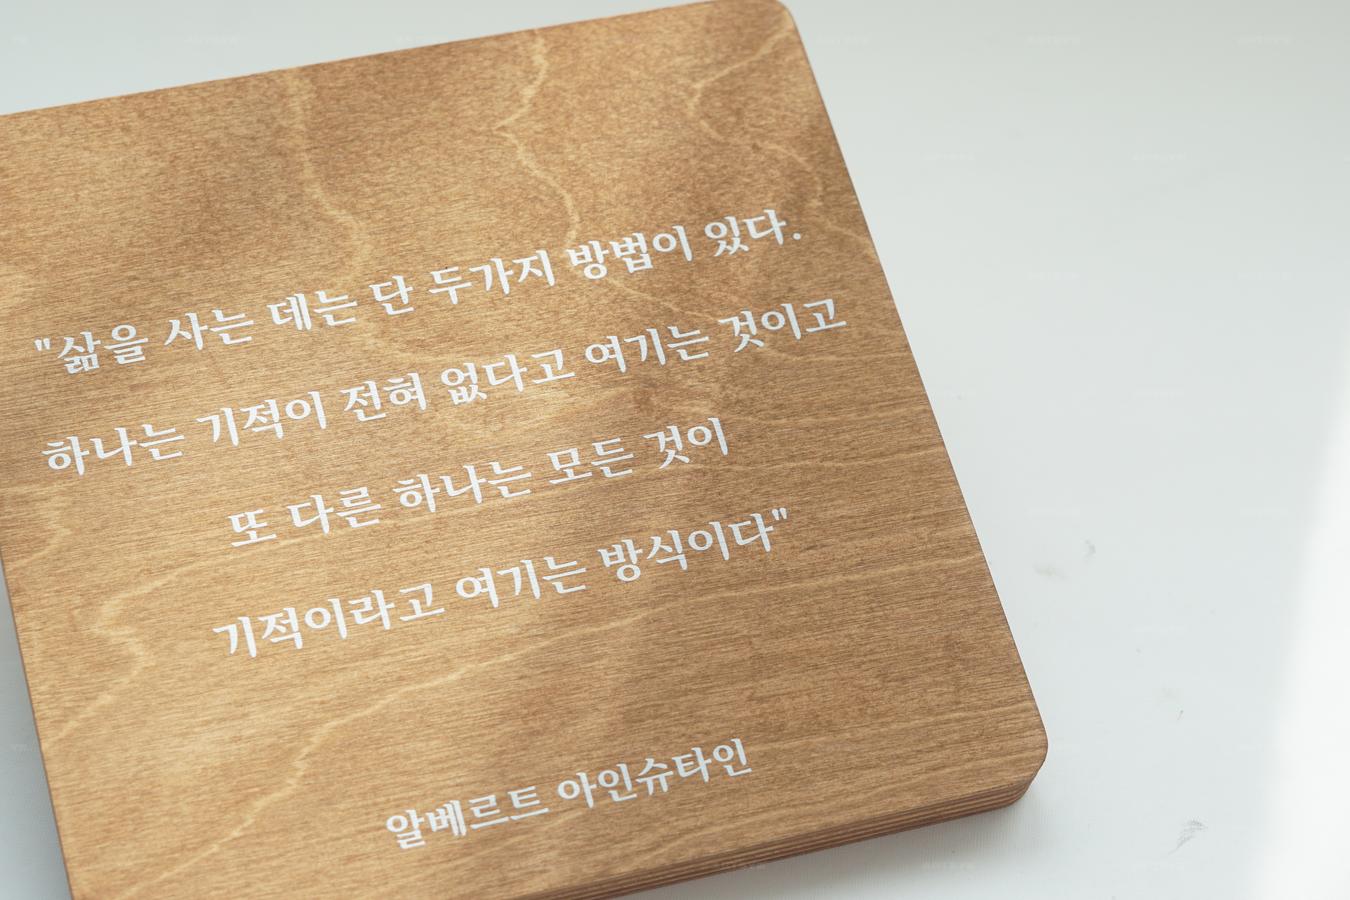 "삶을 사는 데는 단 두가지 방법이 있다.
하나는 기적이 전혀 없다고 여기는 것이고
또 다른 하나는 모든 것이
기적이라고 여기는 방식이다"
알베르트 아인슈타인